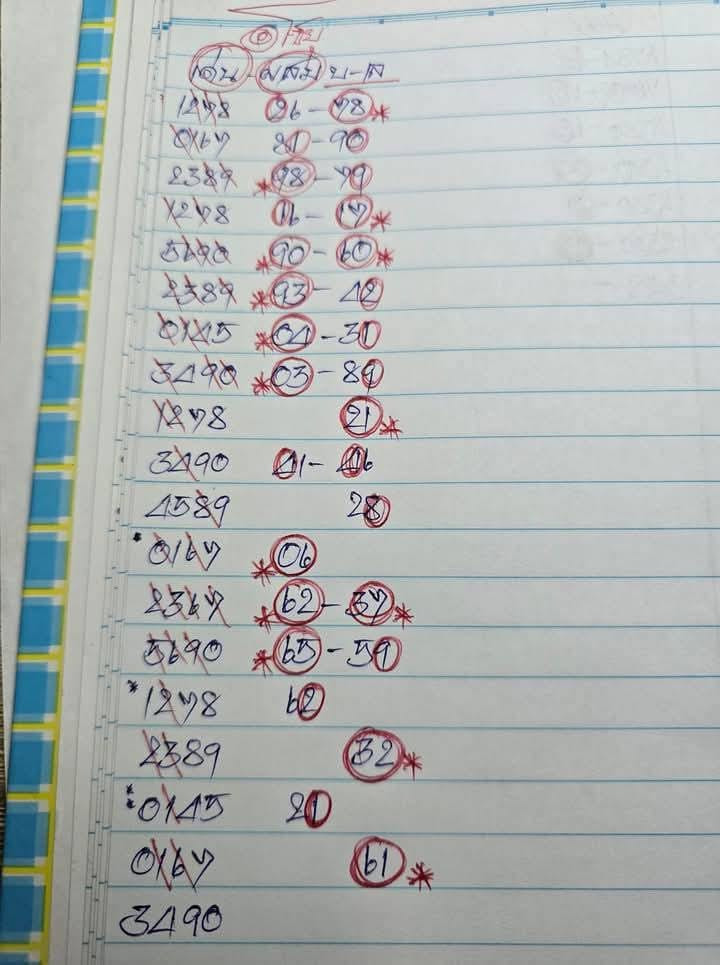 เด่น - ผสม บ-ล
1278 26 - 78*
0167 21 - 90
2389 *98 - 79
1278 16 - 17*
5690 *90 - 60*
2389 *93 - 42
0145 *04 - 31
3490 *03 - 89
1278 21*
3490 41 - 46
4589 28
*0167 *06
2367 *62 - 37*
5690 *65 - 59
*1278 62
2389 32*
**0145 21
0167 61*
3490